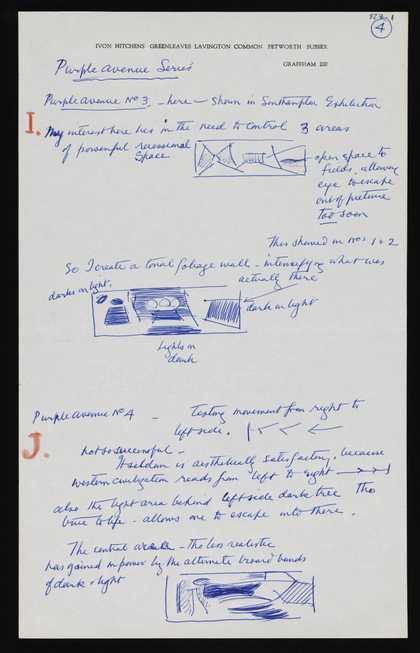 4
IVON HITCHENS GREENLEAVES LAVINGTON COMMON PETWORTH SUSSEX
GRAFFHAM
Purple avenue Series
Purple avenue No 3. - here - shown in Southampton Exhibition
I. My interest here lies in the need to control 3 areas
of powerful recessional
Space
open space to
fields, allowing
eye to escape
out of picture
too soon
This showed in nos 1 & 2
So I create a tonal foliage wall - intensifying what was
actually there
darks on light.
dark on light
Lights on
dark
Purple avenue No 4 - Testing movement from right to
left side.
J. not so successful -
It seldom is aesthetically satisfactory, because
western civilization reads from left to right
also the light area behind left side dark tree Tho
true to life - allows one to escape into there.
The central area - Tho less realistic
has gained in power by the alternate broad bands
of dark & light